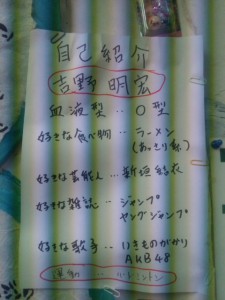 自己紹介
吉野 明宏
血液型‥O型
好きな食べ物‥ラーメン
(あっさり系)
好きな芸能人…新垣結衣
好きな雑誌‥ジャンプ
ヤングジャンプ
好きな歌手‥いきものがかり
AKB48
運動